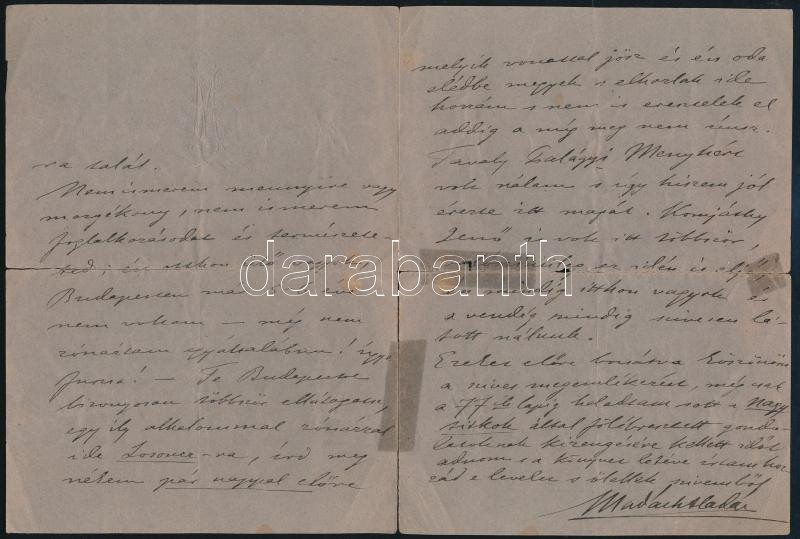 ra talál.
Nem ismerem mennyire vagy
mozgékony, nem ismerem
foglalkozásodat és természete-
ted; én otthon
Budapesten már
nem voltam – még nem
zónáztam egyáltalában!
furcsa! – Te Budapestre
bizonyosan többször ellátogatsz,
egy ily alkalommal zónázzál
ide Losoncz-ra, írd meg
nékem pár nappal előre
melyik vonattal jösz és én oda
elédbe megyek s elhozlak ide
hozzám s nem is eresztelek el
addig a míg meg nem únsz.
Tavaly Palágyi Menyhért
volt nálam s így hiszem jól
érezte itt magát. Komjáthy
Jenő is volt itt többször,
az idén is
mindig itthon vagyok és
a vendég mindig szivesen lá-
tott nálunk.
Ezeket előre bocsátva köszönöm
a szives megemlékezést, még csak
a 77-ik lapig haladtam s ott a Nagy
titkok által fölébresztett gondo-
latoknak kizengésére kellett időt
adnom s a könyvet letéve írtam hoz-
zád e levelet s ötlettek szivemből
Madách Aladár
darabanth